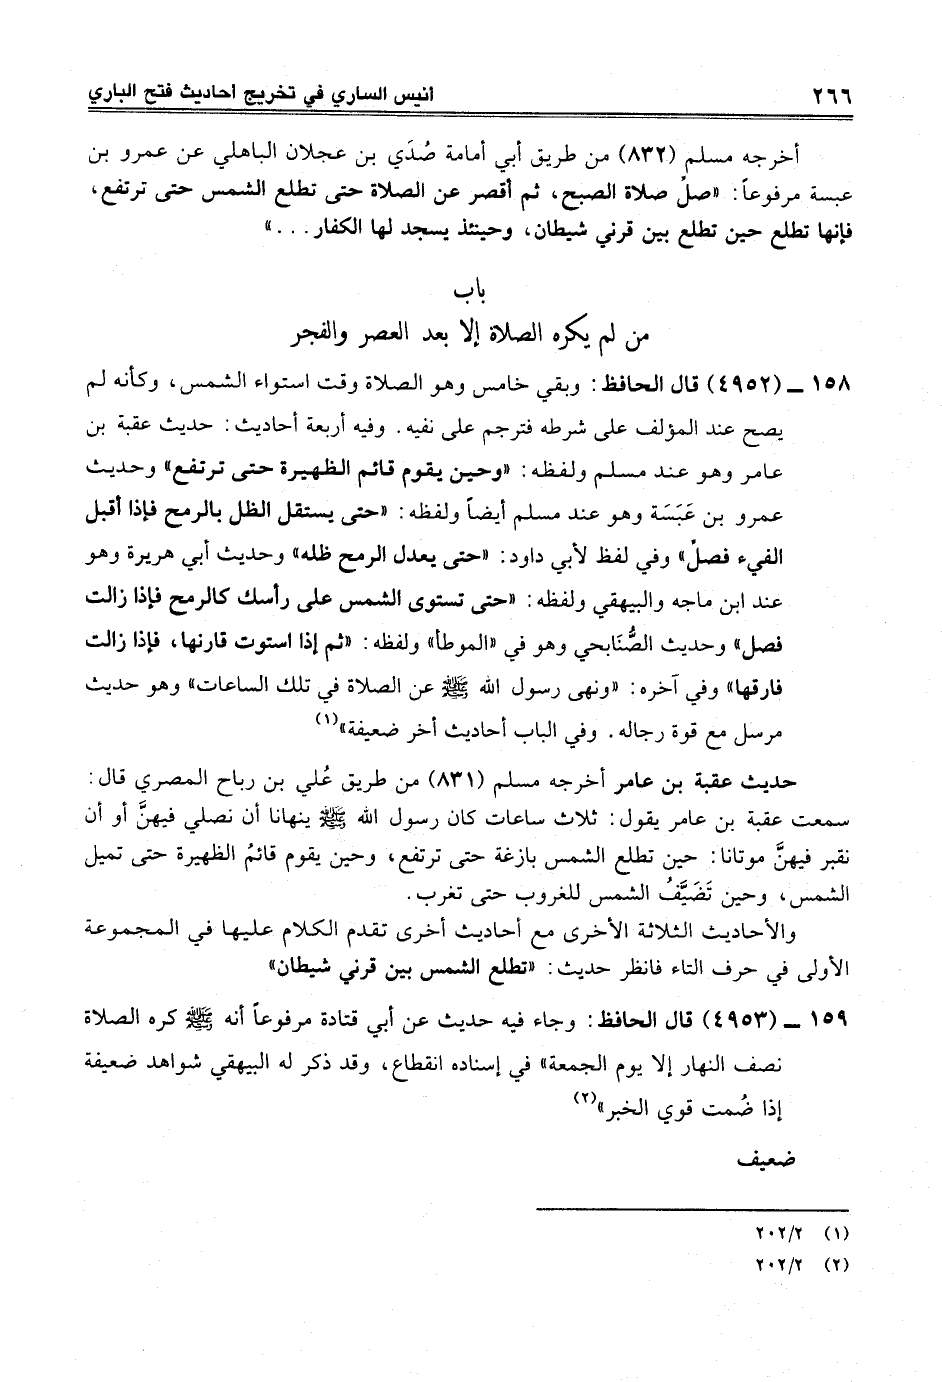 ٢٦٦ انيس الساري في تخريج احاديث فتح الباري
أخرجه مسلم (٨٣٢) من طريق أبي أمامة صُدَي بن عجلان الباهلي عن عمرو بن
عبسة مرفوعاً: «صلُ صلاة الصبح، ثم أقصر عن الصلاة حتى تطلع الشمس حتى ترتفع،
فإنها تطلع حين تطلع بين قرني شيطان، وحينئذ يسجد لها الكفار. . .»
باب
من لم يكره الصلاة إلا بعد العصر والفجر
١٥٨ ـ (٤٩٥٢) قال الحافظ: وبقي خامس وهو الصلاة وقت استواء الشمس، وكأنه لم
يصح عند المؤلف على شرطه فترجم على نفيه. وفيه أربعة أحاديث: حديث عقبة بن
عامر وهو عند مسلم ولفظه: «وحين يقوم قائم الظهيرة حتى ترتفع» وحديث
عمرو بن عَبَسَة وهو عند مسلم أيضاً ولفظه: «حتى يستقل الظل بالرمح فإذا أقبل
الفيء فصلِّ» وفي لفظ لأبي داود: «حتى يعدل الرمح ظله» وحديث أبي هريرة وهو
عند ابن ماجه والبيهقي ولفظه: «حتى تستوى الشمس على رأسك كالرمح فإذا زالت
فصل» وحديث الصُّنَابحي وهو في «الموطأ» ولفظه: «ثم إذا استوت قارنها، فإذا زالت
فارقها» وفي آخره: «ونهى رسول الله ﷺ عن الصلاة في تلك الساعات» وهو حديث
مرسل مع قوة رجاله. وفي الباب أحاديث أخر ضعيفة»(١)
حديث عقبة بن عامر أخرجه مسلم (٨٣١) من طريق عُلي بن رباح المصري قال:
سمعت عقبة بن عامر يقول: ثلاث ساعات كان رسول الله ﷺ ينهانا أن نصلي فيهنَّ أو أن
نقبر فيهنَّ موتانا: حين تطلع الشمس بازغة حتى ترتفع، وحين يقوم قائمُ الظهيرة حتى تميل
الشمس، وحين تَضَيَّفُ الشمس للغروب حتى تغرب.
والأحاديث الثلاثة الأخرى مع أحاديث أخرى تقدم الكلام عليها في المجموعة
الأولى في حرف التاء فانظر حديث: «تطلع الشمس بين قرني شيطان»
١٥٩ ـ (٤٩٥٣) قال الحافظ: وجاء فيه حديث عن أبي قتادة مرفوعاً أنه ﷺ كره الصلاة
نصف النهار إلا يوم الجمعة» في إسناده انقطاع، وقد ذكر له البيهقي شواهد ضعيفة
إذا ضُمت قوي الخبر»(٢)
ضعيف
(١) ٢٠٢/٢
(٢) ٢٠٢/٢